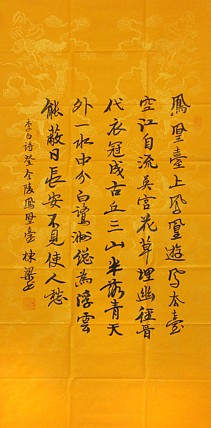 鳳凰臺上鳳凰遊鳳去臺
空江自流吳宮花草埋幽徑晉
代衣冠成古丘三山半落青天
外一水中分白鷺洲總為浮雲
能蔽日長安不見使人愁
李白诗登金陵鳳凰臺 棟梁书